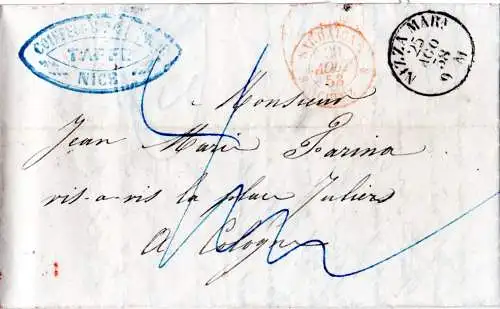 TAFFE
NICE
SARDAIGNE
AOUT
58
NIZZA MARA
25
AGO
58
9 M
Monsieur
Jean Marie Farina
vis-a-vis la place Juliers
a Cologne